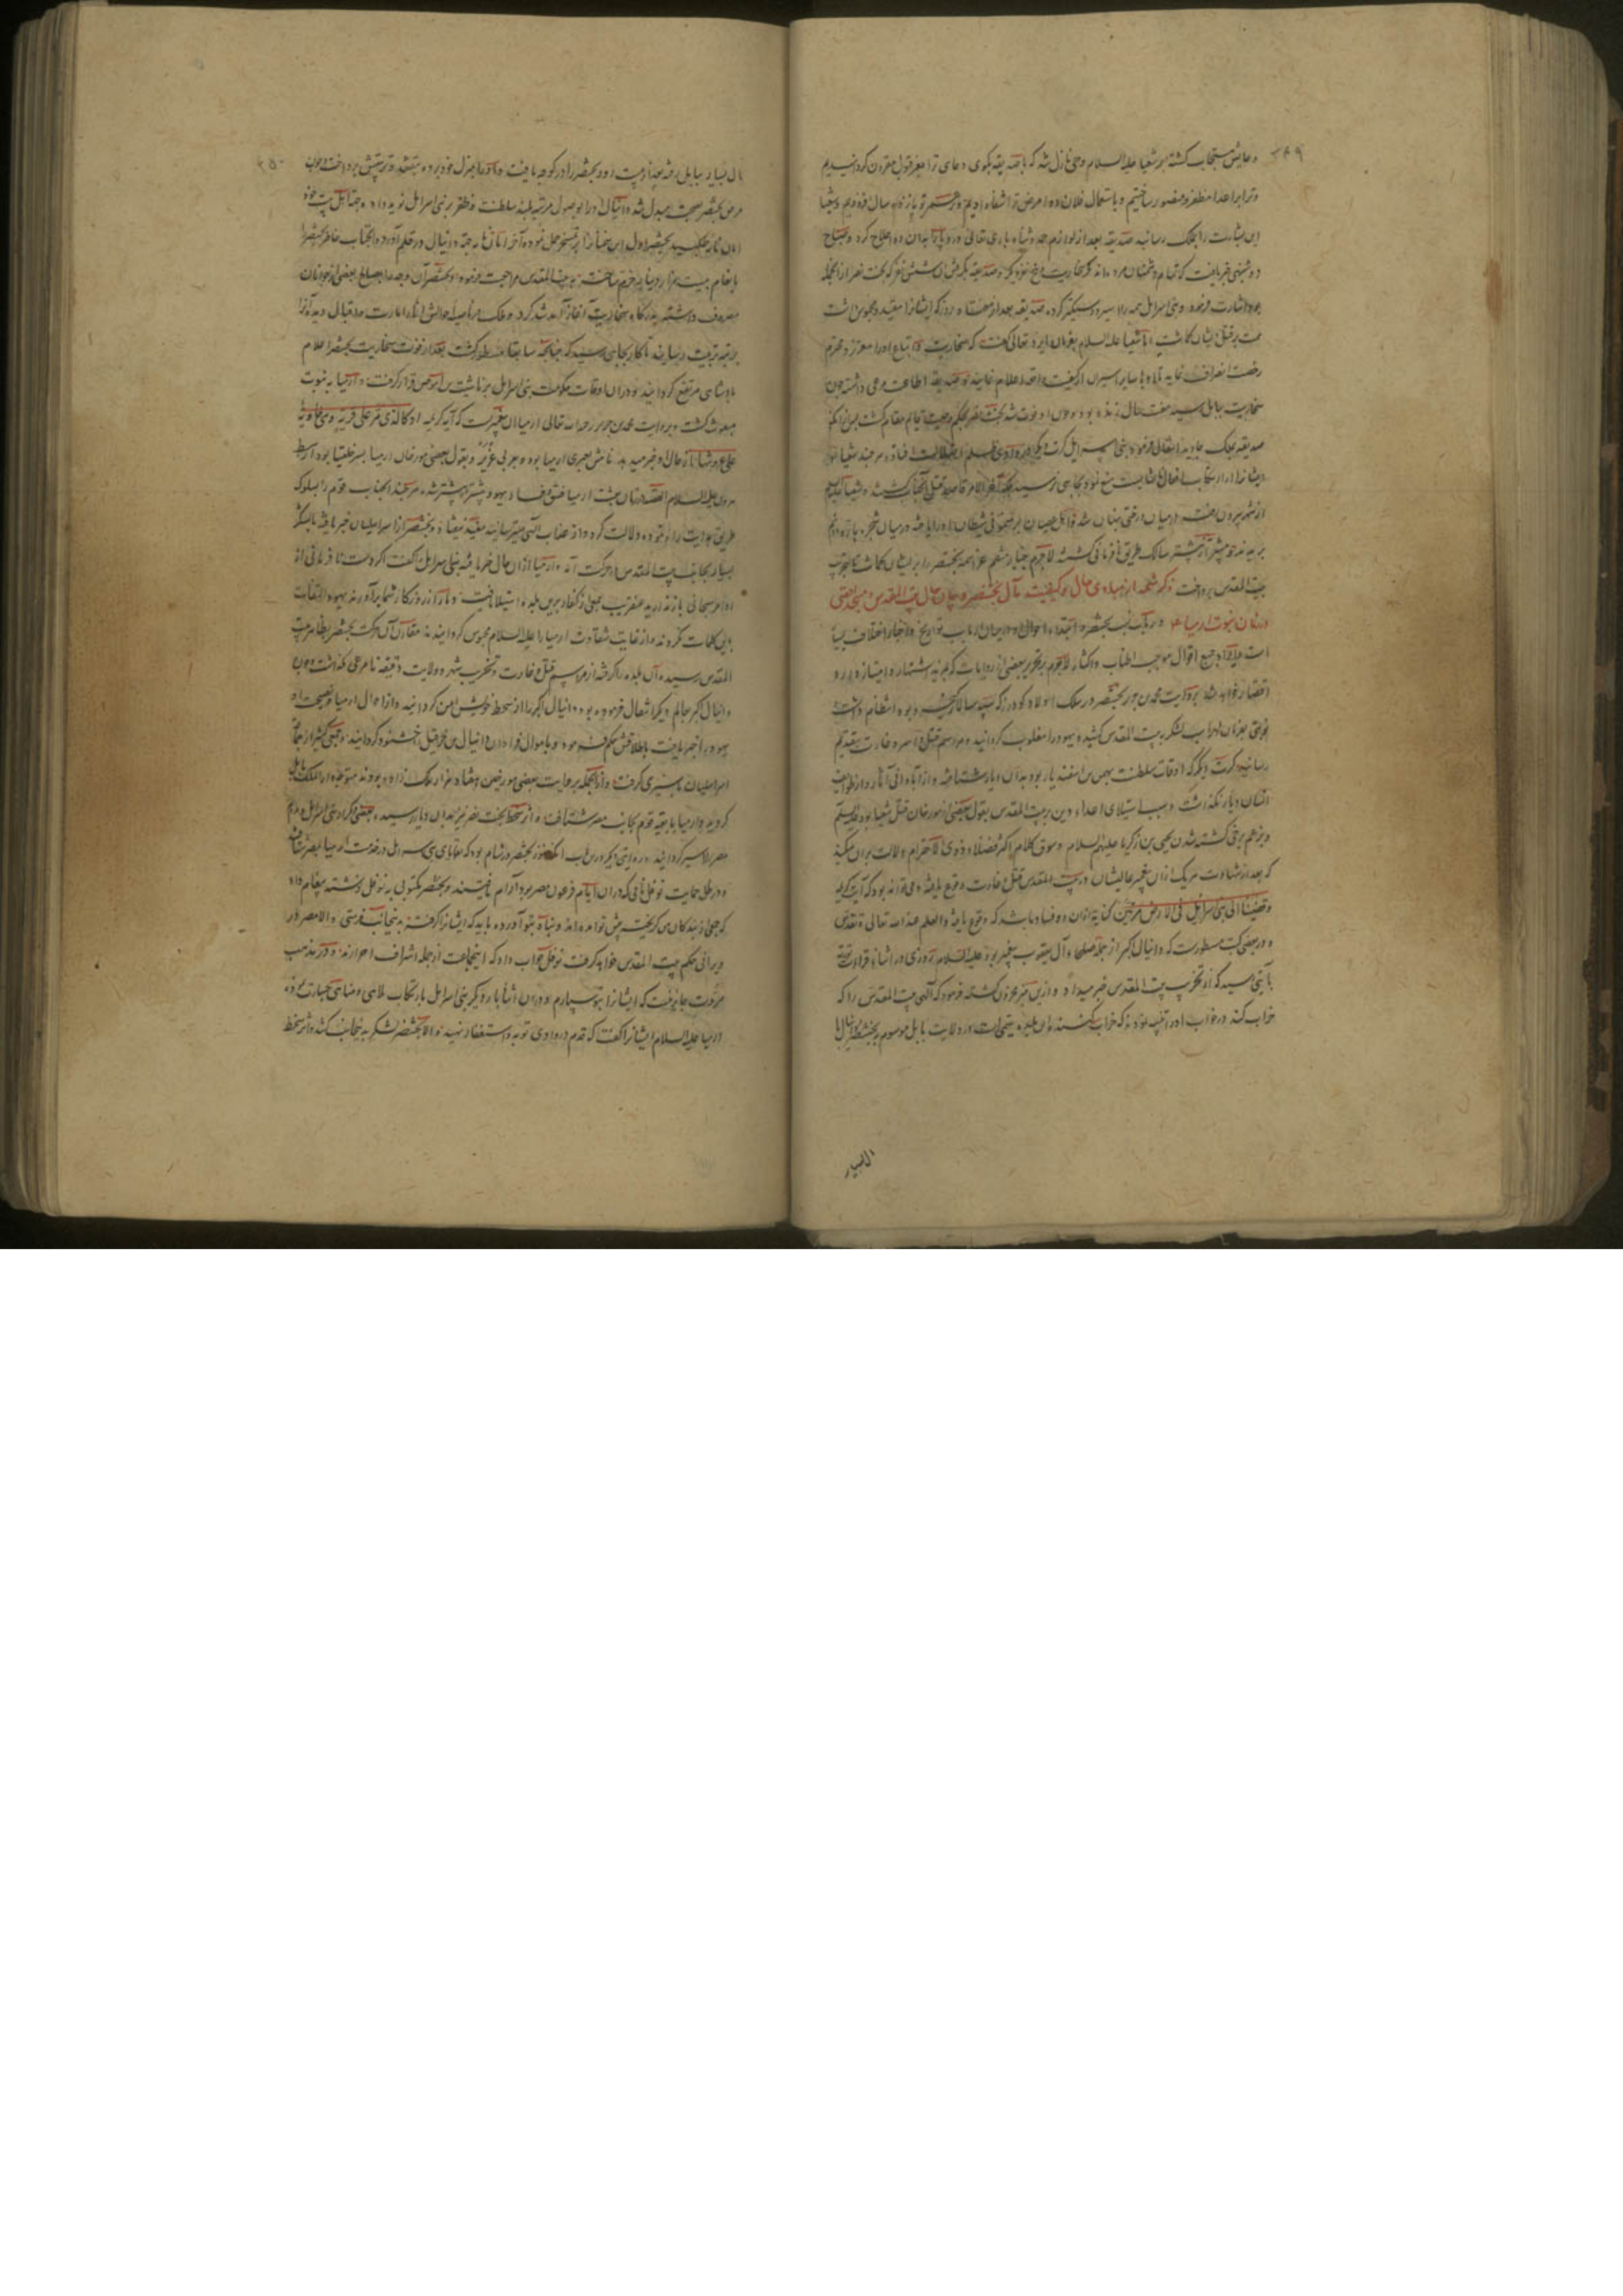 ۲۴۹
دعایش مستجاب کشته بر شعیا علیه السلام وحی نازل شد که با صدیقه بکوی دعای ترا بعز قبول مقرون کردانیدیم
وترا بر اعدا مظفر و منصور ساختیم و باستعمال فلان دوا مرض ترا شفا دادیم و بر عمر تو پانزده سال افزودیم و شعیا
این بشارت را بملک رسانید صدیقه بعد از لوازم حمد و ثناء باری تعالی بدان دوا علاج کرد و صباح
دوشنبه خبر یافت که تمام دشمنان مرده اند مکر سخاریب و پنج نفر دیکر و صدیقه بکرفتن آن شش نفر که بخت نصر از آنجمله
بود اشارت فرمود و بنی اسرائیل همه را اسیر و دستکیر کرده صدیقه بعد از هفتاد روز که ایشانرا مقید و محبوس داشت
همت بر قتل ایشان کماشت اما شعیا علیه السلام بفرمان ایزد تعالی کفت که سخاریب و اتباع او را معزز و محترم
رخصت انصراف نماید تا با سایر اسیران از کیفیت واقعه اعلام نمایند و صدیقه اطاعت مرعی داشته چون
سخاریب ببابل رسید هفت سال زنده بود و چون او فوت شد بخت نصر بحکم وصیت قایم مقام کشت پس از آنکه
صدیقه بملک جاوید انتقال فرمود بنی اسرائیل کرت دیکر در وادی ظلم و ضلالت افتادند هر چند شعیا
ایشانرا از ارتکاب افعال ناشایست منع نمود بجایی نرسید بلکه آخر الامر قاصد قتل آنجناب شدند و شعیا علیه السلام
از شهر بیرون رفته در میان درختی پنهان شد
بیت المقدس پرداخت ذکر شمه از مبادی حال و کیفیت مآل بختنصر و بیان حال بیت المقدس
در زمان نبوت ارمیا در باب نسب بختنصر و ابتداء احوال او در میان ارباب تواریخ و اخبار اختلاف بسیار
است و ایراد جمیع اقوال موجب اطناب و اکثار لاجرم بتحریر بعضی از روایات که بمزید اشتهار امتیاز دارد
اقتصار خواهد شد بروایت محمد بن جریر بختنصر در سلک اولاد کودرز که سپهسالار کیخسرو بود انتظام داشت
بموجب فرمان لهراسب لشکر به بیت المقدس کشید و یهود را مغلوب کردانید و مراسم قتل و اسر و غارت بتقدیم
رسانید و کرت دیکر که اوقات سلطنت بهمن بن اسفندیار بود بدان دیار شتافته و از آبادانی آثار و از طوایف
انسان دیار نکذاشت و سبب استیلای اعداء دین بر بیت المقدس بقول بعضی از مورخان قتل شعیا بود علیه السلام
و بزعم برخی کشته شدن یحیی بن زکریا علیهم السلام و سوق کلام اکثر فضلاء ذوی الاحترام دلالت بران میکند
که بعد از شهادت هر یک از آن دو پیغمبر عالیشان در بیت المقدس قتل و غارت وقوع یافته و می تواند بود که آیت کریمه
وقضینا الی بنی اسرائیل فی الارض مرتین کنایة از آن دو فساد باشد که وقوع یافته و العلم عند الله تعالی و تقدس
و در بعضی کتب مسطورست که دانیال اکبر از جمله صلحاء آل یعقوب پیغمبر بود علیه السلام روزی در اثناء قراءت توریة
بآیتی رسید که از تخریب بیت المقدس خبر میداد و ازین خبر محزون کشته فرمود که الهی بیت المقدس را که
خراب کند در خواب او را تنبیه نمودند که خراب کننده این بلده یتیمی است در ولایت بابل موسوم ببختنصر دانیال با
الاسیار
۲۵۰
مال بسیار ببابل رفته بعد از مدت او بختنصر را در کوچه یافت و او را بمنزل خود برده بتعهد و تربیتش پرداخت و چون
مرض بختنصر بصحت مبدل شد دانیال او را بوصول مرتبه بلند سلطنت و ظفر بر بنی اسرائیل نوید داده جهت اهل بیت خود
امان نامه طلبید بختنصر اول این سخنانرا بر تسخر حمل نموده آخر امان نامه جهة دانیال در قلم آورد و آنجناب خاطر بختنصر را
بانعام بیست هزار دینار خرم ساخته به بیت المقدس مراجعت فرمود و بختنصر آن وجه را بمصالح بعضی از جوانان
مصروف داشته بدرکاه سخاریب آغاز آمد شد کرد و ملک
برتبه تربیت رسانید تا کار بجایی رسید که چنانچه سابقا مسطور کشت بعد از فوت سخاریب بختنصر اعلام
پادشاهی مرتفع کردانید و در آن اوقات حکومت بنی اسرائیل بر ناشیة بن آموص قرار کرفت و ارمیا به نبوت
مبعوث کشت و بروایت محمد بن جریر رحمه الله تعالی ارمیا آن پیغمبرست که آیه کریمه او کالذی مر علی قریة وهی خاویة
علی عروشها از حال او خبر میدهد نامش بعبری ارمیا بود و بعربی عزیر و بقول بعضی مورخان ارمیا پسر خلقیا بود از سبط
هرون علیه السلام القصه در زمان بعثت ارمیا فسق و فساد یهود بیشتر از پیشتر شد هر چند آنجناب قوم را بسلوک
طریق هدایت راه نموده دلالت کرد و از عذاب الهی میترسانید مفید نیفتاد و بختنصر از اسرائیلیان خبر یافته با لشکر
بسیار بجانب بیت المقدس در حرکت آمد و ارمیا از آن حال خبر یافته بنی اسرائیل را کفت اکر دست از نافرمانی
اوامر سبحانی باز ندارید عنقریب جمعی از کفار برین بلده استیلا یافته دمار از روزکار شما برآورند یهود التفات
باین کلمات نکردند و از غایت شقاوت ارمیا را علیه السلام محبوس کردانیدند مقارن آن حرکت بختنصر بظاهر بیت
المقدس رسیده آن بلده را کرفته از مراسم قتل و غارت و تخریب شهر و ولایت دقیقه نامرعی نکذاشت و چون
دانیال اکبر بعالم دیکر انتقال فرموده بود دانیال اکبر را از سخط خویش ایمن کردانید و از احوال ارمیا و نصیحت او
یهود را خبر یافت باطلاقش حکم فرمود و باموال فراوان دانیال بن حزقیل خشنود کردانید و جمعی کثیر را از جماعت
اسرائیلیان باسیری کرفت و از آنجمله بروایت بعضی مورخین هفتاد هزار ملک زاده بودند متوجه دار الملک بابل
کردید و ارمیا با بقیه قوم بجانب مصر شتافته و اثر سخط بخت نصر نیز بدان دیار رسید و بعضی دیکر از بنی اسرائیل و مردم
مصر را اسیر کردانید و روایتی دیکر درین باب آنکه هنوز بختنصر در شام بود که بقایای بنی اسرائیل در خدمت ارمیا بمصر شتافته
و در ظل حمایت نوفل نامی که در آن ایام فرعون مصر بود آرام یافتند و بختنصر مکتوبی به نوفل نوشته پیغام داد
که جمعی از بندکان من کریخته پیش تو آمده اند و پناه بتو آورده باید که ایشانرا کرفته بدینجانب فرستی و الا مصر در
ویرانی حکم بیت المقدس خواهد کرفت نوفل جواب داد که اینجماعت از جمله اشراف احرارند و در مذهب
مروت جایز نیست که ایشانرا بتو سپارم و در آن اثنا بار دیکر بنی اسرائیل بارتکاب ملاهی و مناهی جسارت نمودند
ارمیا علیه السلام ایشانرا کفت که قدم در وادی توبه و استغفار نهید و الا بختنصر لشکر بدینجانب کشد و اثر سخط